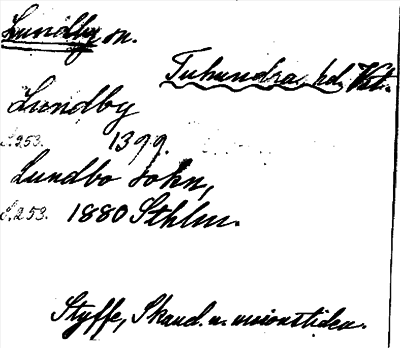 Lundby sn.
Tuhundra hd, Vstm.
Lundby
S. 253. 1399.
Lundbo sokn,
S. 253. 1880 Sthlm.
Styffe, Skand. u. unionstiden.